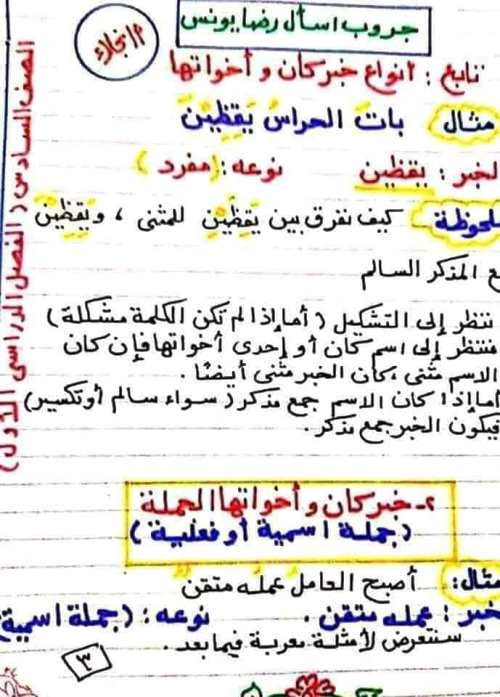 جروب اسأل رضا يونس
تابع : أنواع خبر كان و أخواتها
مثال باتَ الحراسُ يَقِظِينَ
لخبر : يقظين نوعه : (مفرد)
لحوظة كيف نفرق بين يَقِظَيْنِ للمثنى ، ويَقِظِينَ
ع المذكر السالم
ننظر إلى التشكيل (أما إذا لم تكن الكلمة مشكلة)
فننظر إلى اسم كان أو إحدى أخواتها فإن كان
الاسم مثنى ، كان الخبر مثنى أيضًا .
أما إذا كان الاسم جمع مذكر (سواء سالم أو تكسير)
فيكون الخبر جمع مذكر .
٢- خبر كان و أخواتها الجملة
(جملة اسمية أو فعلية)
مثال : أصبح العاملُ عملُه متقنٌ
خبر : عمله متقن . نوعه : (جملة اسمية)
سنتعرض لأمثلة معربة فيما بعد .
٣
الصف السادس (الفصل الدراسى الأول)